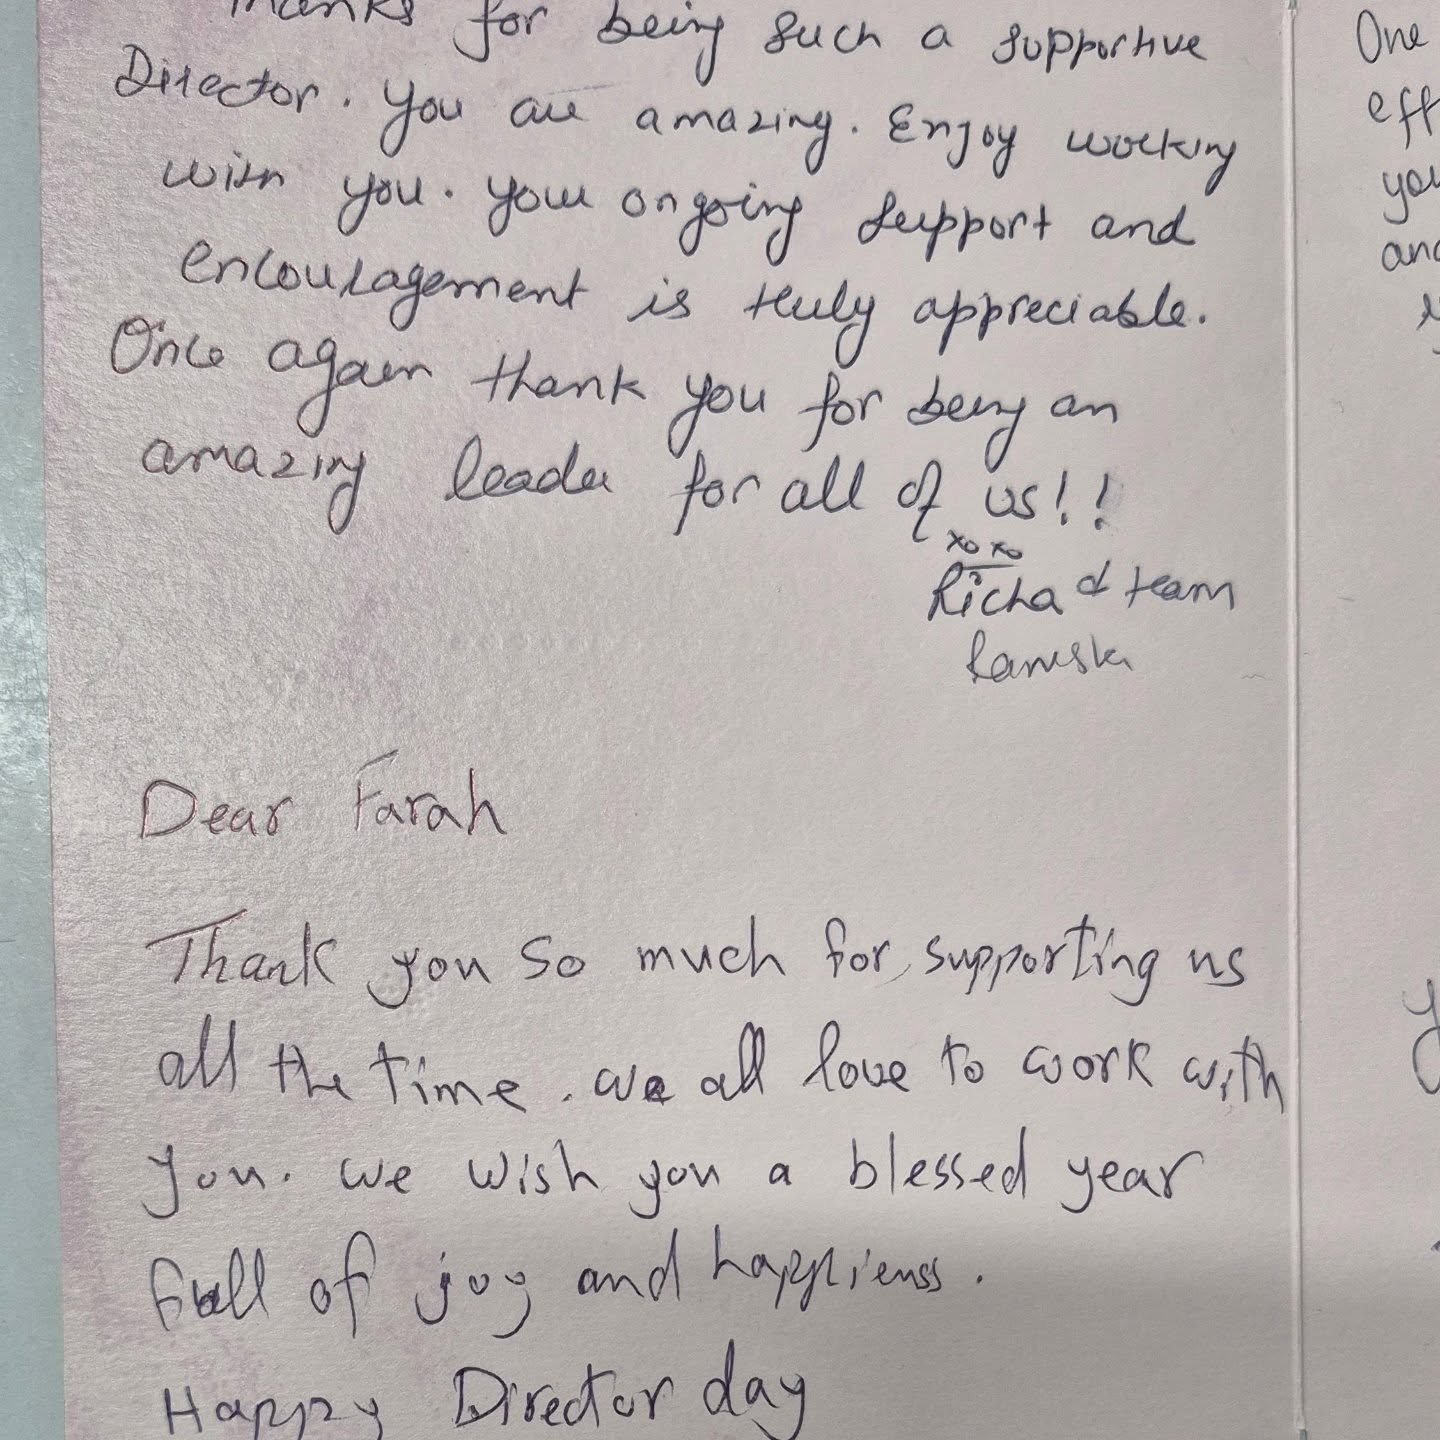 Thanks for being such a supportive
Director. You are amazing. Enjoy working
with you. Your ongoing support and
encouragement is truly appreciable.
Once again thank you for being an
amazing leader for all of us!!
xo xo
Richa & team
Dear Farah
Thank you so much for supporting us
all the time. we all love to work with
you. we wish you a blessed year
full of joy and happienss.
Happy Director day
One
eff
you
and